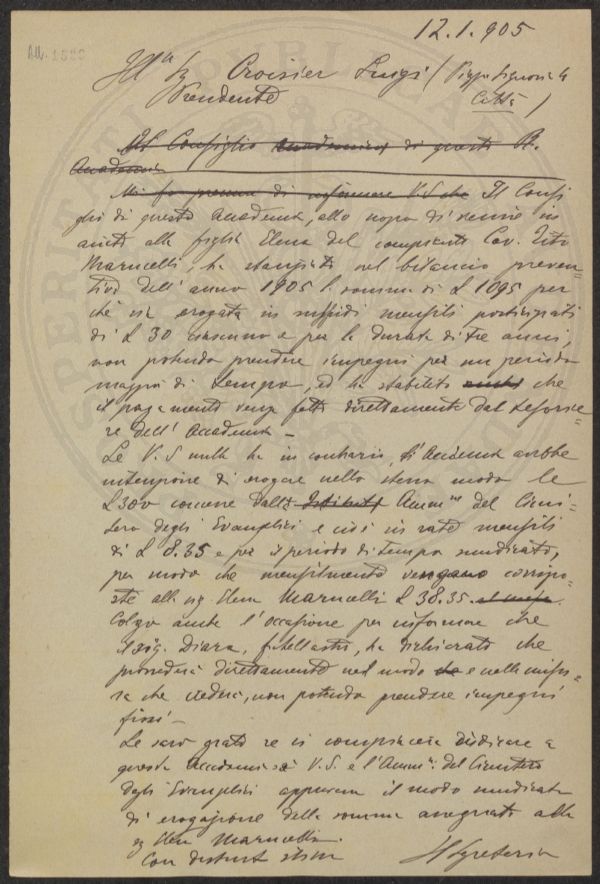 12.1.905
All. 1520
Ill. Sig. Croisier Luigi (Piazza Signoria 4
Presidente Città)
Il Consiglio Accademico di questa R.
Accademia
Mi fo premura di informare V.S che Il Consi
glio di questa Accademia, allo scopo di venire in
aiuto alla figlia Elena del compianto Cav. Tito
Marucelli, ha stanziato nel bilancio preven=
tivo dell'anno 1905 la somma di L 1095 per
ché sia erogata in sussidi mensili posticipati
di L 30 ciascuno e per la durata di tre anni,
non potendo prendere impegni per un periodo
maggior di tempo, ed ha stabilito che
il pagamento venga fatto direttamente dal tesorie=
re dell'Accademia —
Se V.S nulla ha in contrario, l'Accademia avrebbe
intenzione di erogare nello stesso modo le
L 300 concesse dall' Istituto Amm.ne del Cimi=
tero degli Evangelici e cioè in rate mensili
di L 8.35 e per il periodo di tempo suindicato,
per modo che mensilmente vengano corrispo=
ste alla sig. Elena Marucelli L 38.35.
Colgo anche l'occasione per informare che
il Sig. Diaz, fratellastro, ha dichiarato che
provvederà direttamente nel modo che e nella misu=
ra che crederà, non potendo prendere impegni
fissi —
Le sarò grato se si compiacerà dire a
questa Accademia se V.S. e l'Amm.ne del Cimitero
degli Evangelici approvano il modo suindicato
di erogazione della somma assegnata alla
sig Elena Marucelli.
Con distinta stima
Il Segretario